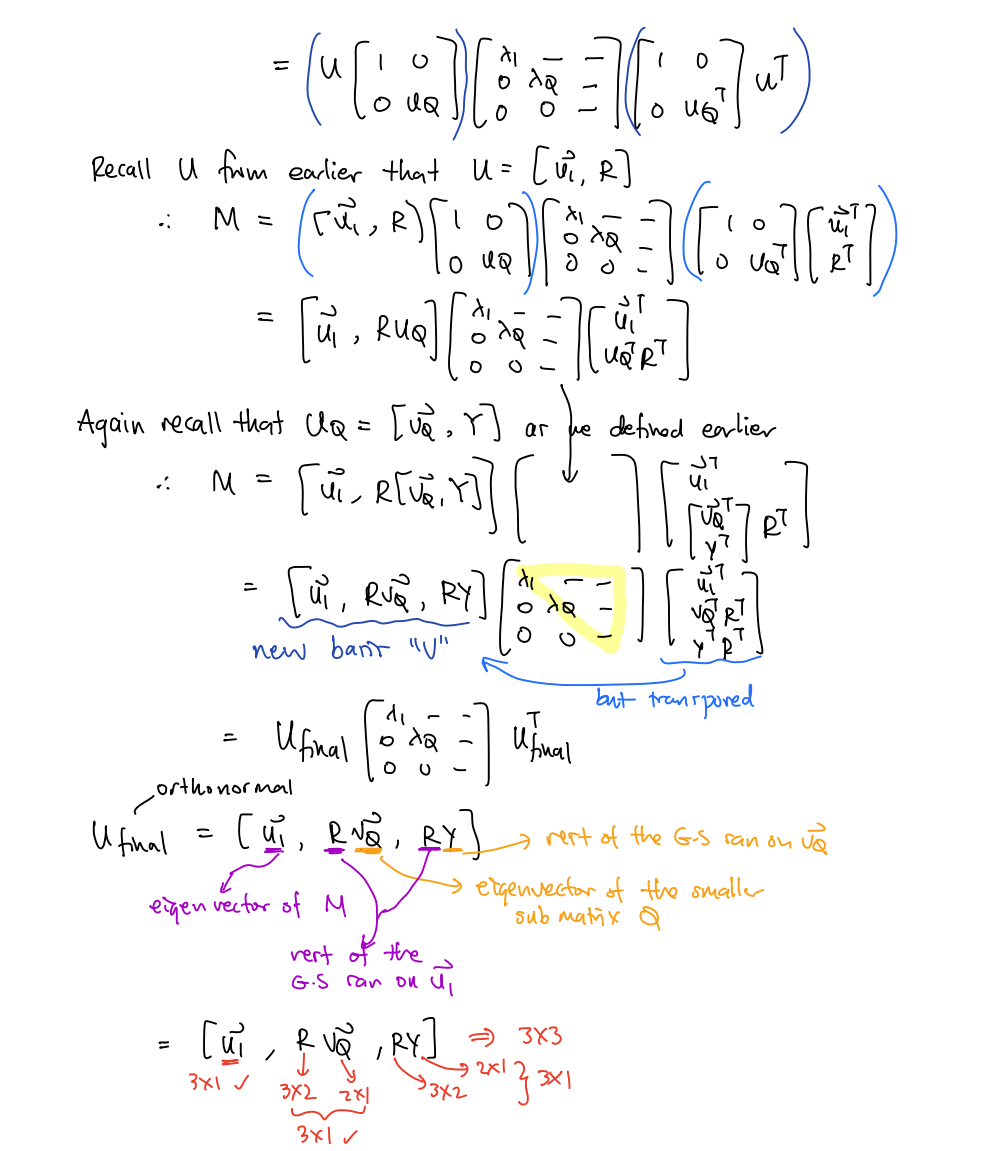 = (U [1 0; 0 U_Q]) [λ₁ – –; 0 λ_Q –; 0 0 –] ([1 0; 0 U_Q^T] U^T)
Recall U from earlier that U = [u⃗₁, R]
∴ M = ([u⃗₁, R) [1 0; 0 U_Q]) [λ₁ – –; 0 λ_Q –; 0 0 –] ([1 0; 0 U_Q^T] [u⃗₁^T; R^T])
= [u⃗₁, RU_Q] [λ₁ – –; 0 λ_Q –; 0 0 –] [u⃗₁^T; U_Q^T R^T]
Again recall that U_Q = [v⃗_Q, Y] as we defined earlier
∴ M = [u⃗₁, R[v⃗_Q, Y]] [ ] [u⃗₁^T; [v⃗_Q^T; Y^T] R^T]
= [u⃗₁, Rv⃗_Q, RY] [λ₁ – –; 0 λ_Q –; 0 0 –] [u⃗₁^T; v⃗_Q^T R^T; Y^T R^T]
new basis "U"
but transposed
= U_final [λ₁ – –; 0 λ_Q –; 0 0 –] U_final^T
orthonormal
U_final = [u⃗₁, Rv⃗_Q, RY]
→ rest of the G-S ran on v⃗_Q
→ eigenvector of the smaller
sub matrix Q
eigenvector of M
rest of the
G-S ran on u⃗₁
= [u⃗₁, R v⃗_Q, RY] ⇒ 3x3
3x1 ✓ 3x2 2x1 3x2 2x1 } 3x1
3x1 ✓